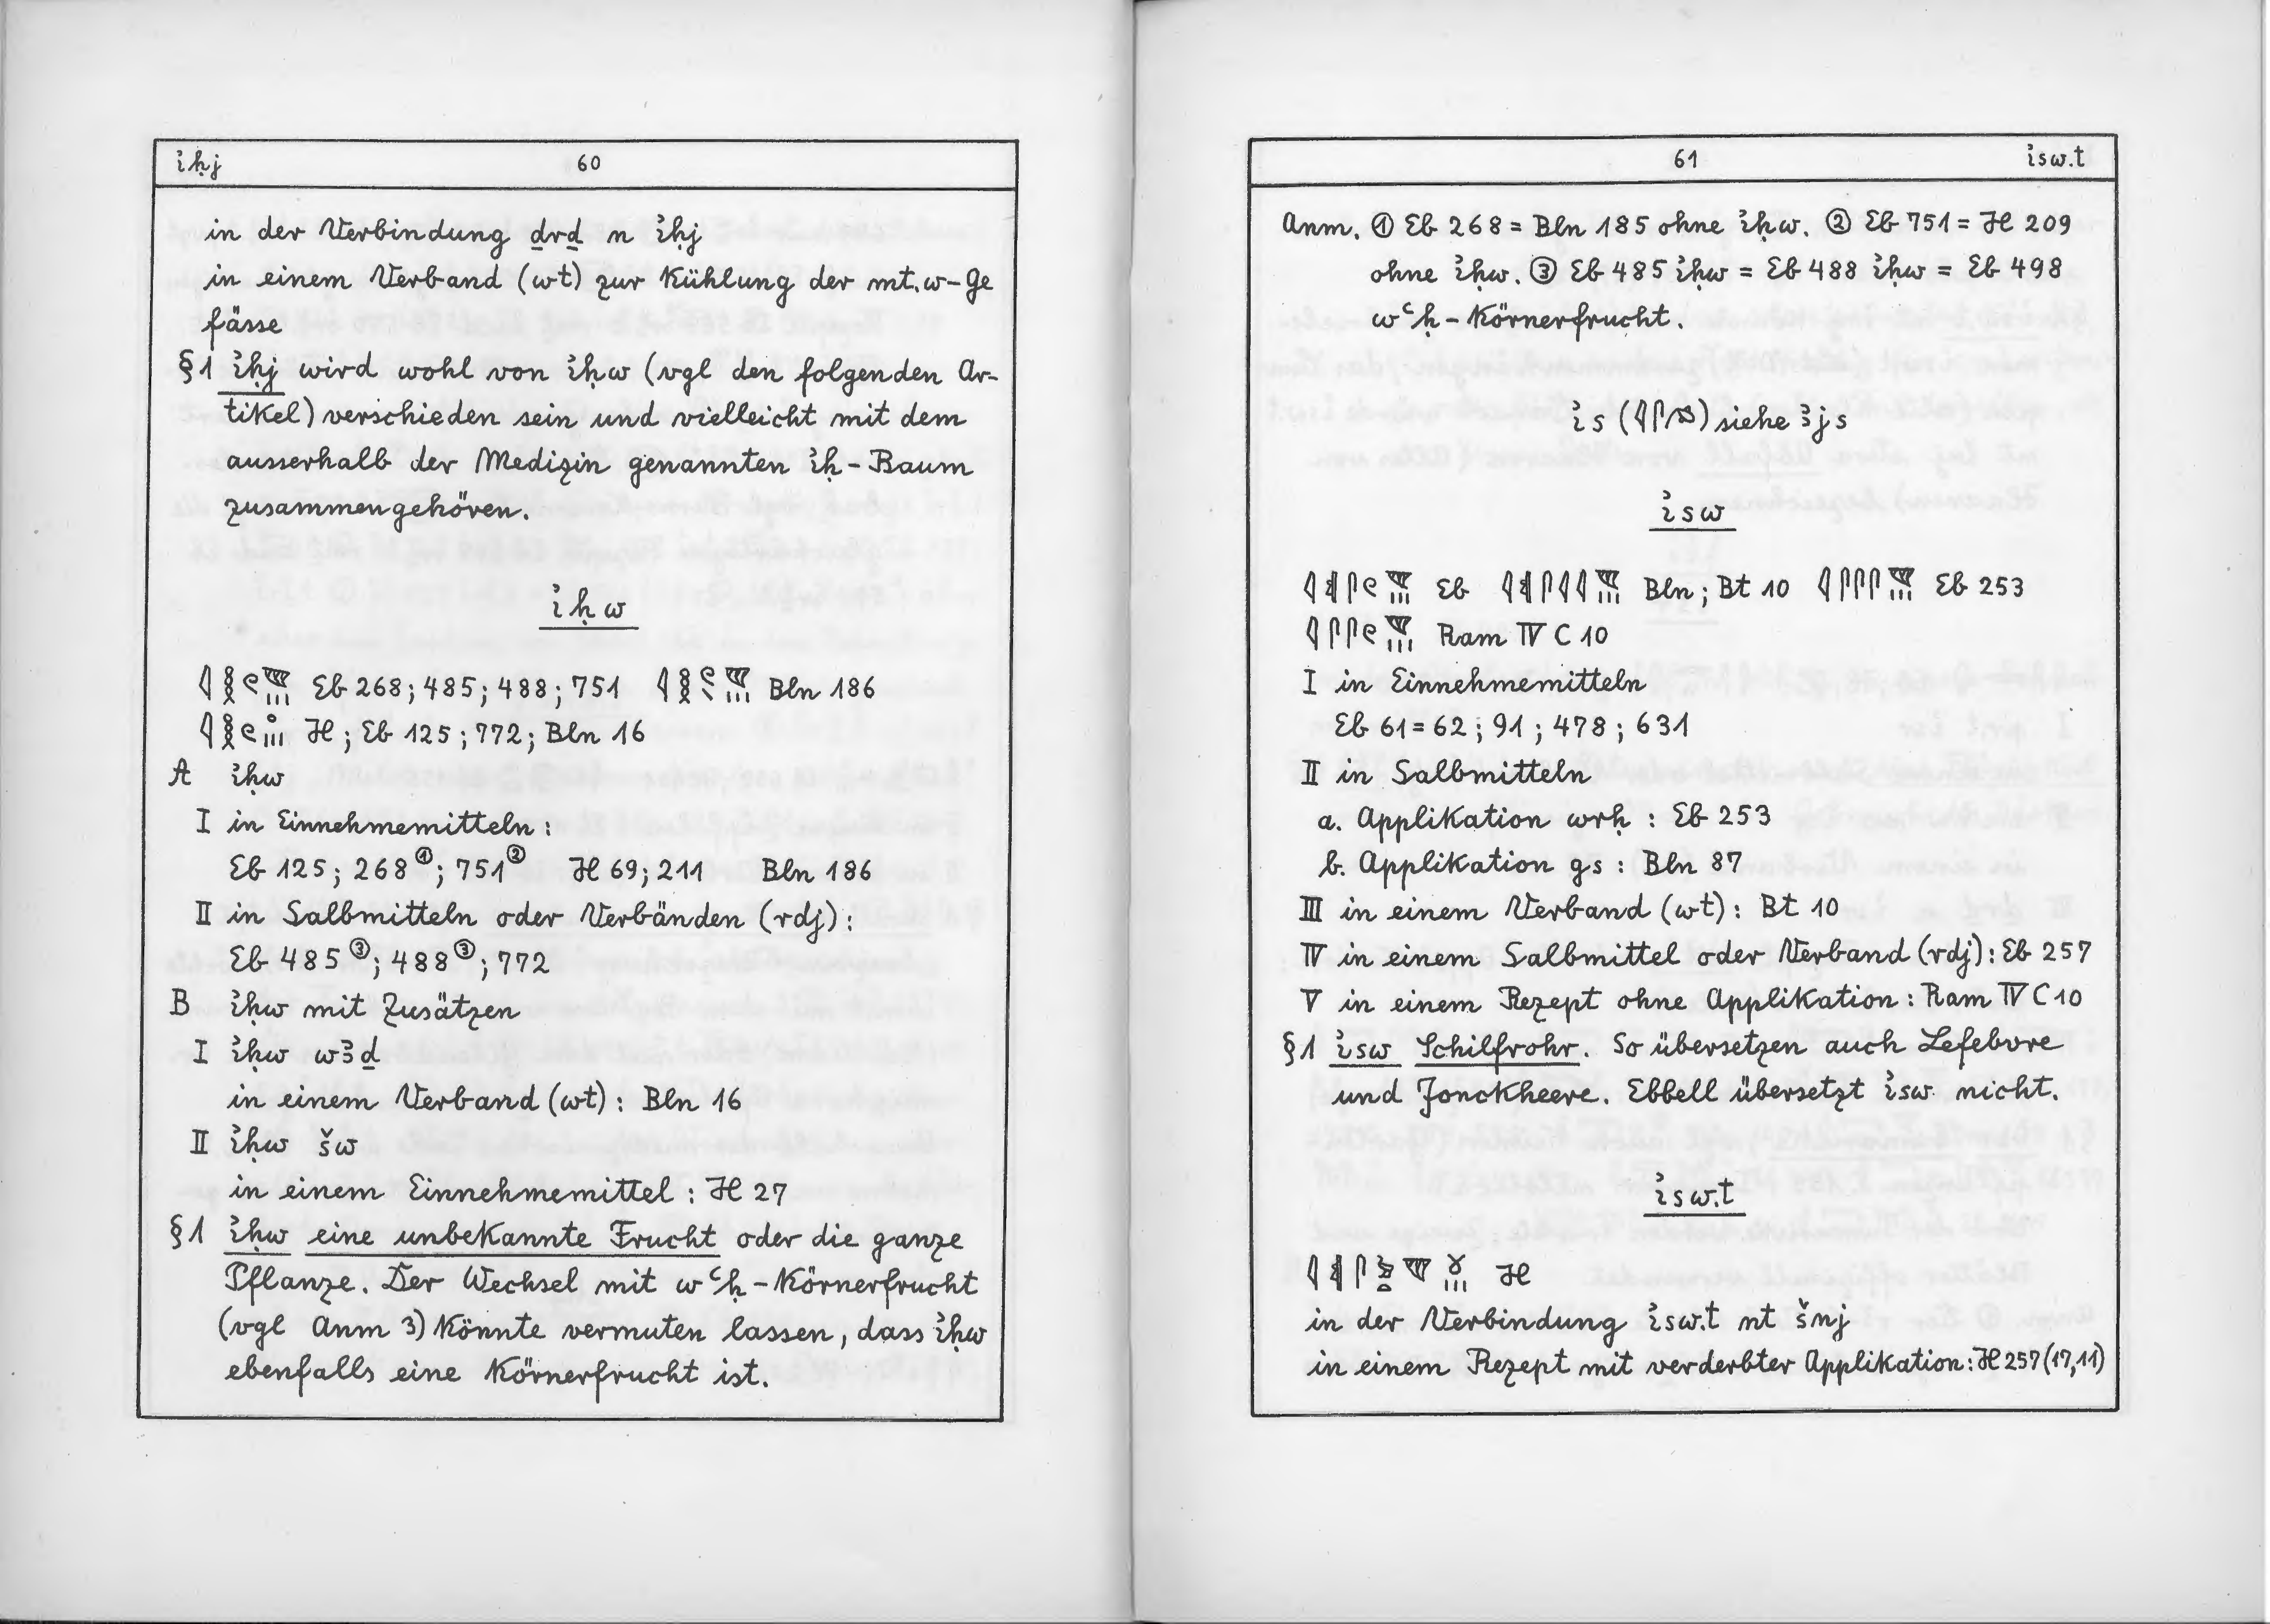 ỉḥj 60
in der Verbindung ḏrḏ n ỉḥj
in einem Verband (wt) zur Kühlung der mt.w-Ge
fässe
§1 ỉḥj wird wohl von ỉḥw (vgl den folgenden Ar-
tikel) verschieden sein und vielleicht mit dem
ausserhalb der Medizin genannten ỉḥ-Baum
zusammengehören.
ỉḥw
Eb 268; 485; 488; 751 Bln 186
H; Eb 125; 772; Bln 16
A ỉḥw
I in Einnehmemitteln:
Eb 125; 268①; 751② H 69; 211 Bln 186
II in Salbmitteln oder Verbänden (rdj):
Eb 485③; 488③; 772
B ỉḥw mit Zusätzen
I ỉḥw wꜣḏ
in einem Verband (wt): Bln 16
II ỉḥw šw
in einem Einnehmemittel: H 27
§1 ỉḥw eine unbekannte Frucht oder die ganze
Pflanze. Der Wechsel mit wꜥḥ-Körnerfrucht
(vgl Anm 3) könnte vermuten lassen, dass ỉḥw
ebenfalls eine Körnerfrucht ist.
61 ỉsw.t
Anm. ① Eb 268 = Bln 185 ohne ỉḥw. ② Eb 751 = H 209
ohne ỉḥw. ③ Eb 485 ỉḥw = Eb 488 ỉḥw = Eb 498
wꜥḥ-Körnerfrucht.
ỉs ( ) siehe ꜣjs
ỉsw
Eb Bln; Bt 10 Eb 253
Ram IV C 10
I in Einnehmemitteln
Eb 61=62; 91; 478; 631
II in Salbmitteln
a. Applikation wrḥ: Eb 253
b. Applikation gs: Bln 87
III in einem Verband (wt): Bt 10
IV in einem Salbmittel oder Verband (rdj): Eb 257
V in einem Rezept ohne Applikation: Ram IV C 10
§1 ỉsw Schilfrohr. So übersetzen auch Lefebvre
und Jonckheere. Ebbell übersetzt ỉsw nicht.
ỉsw.t
H
in der Verbindung ỉsw.t nt šnj
in einem Rezept mit verderbter Applikation: H 257 (17,11)